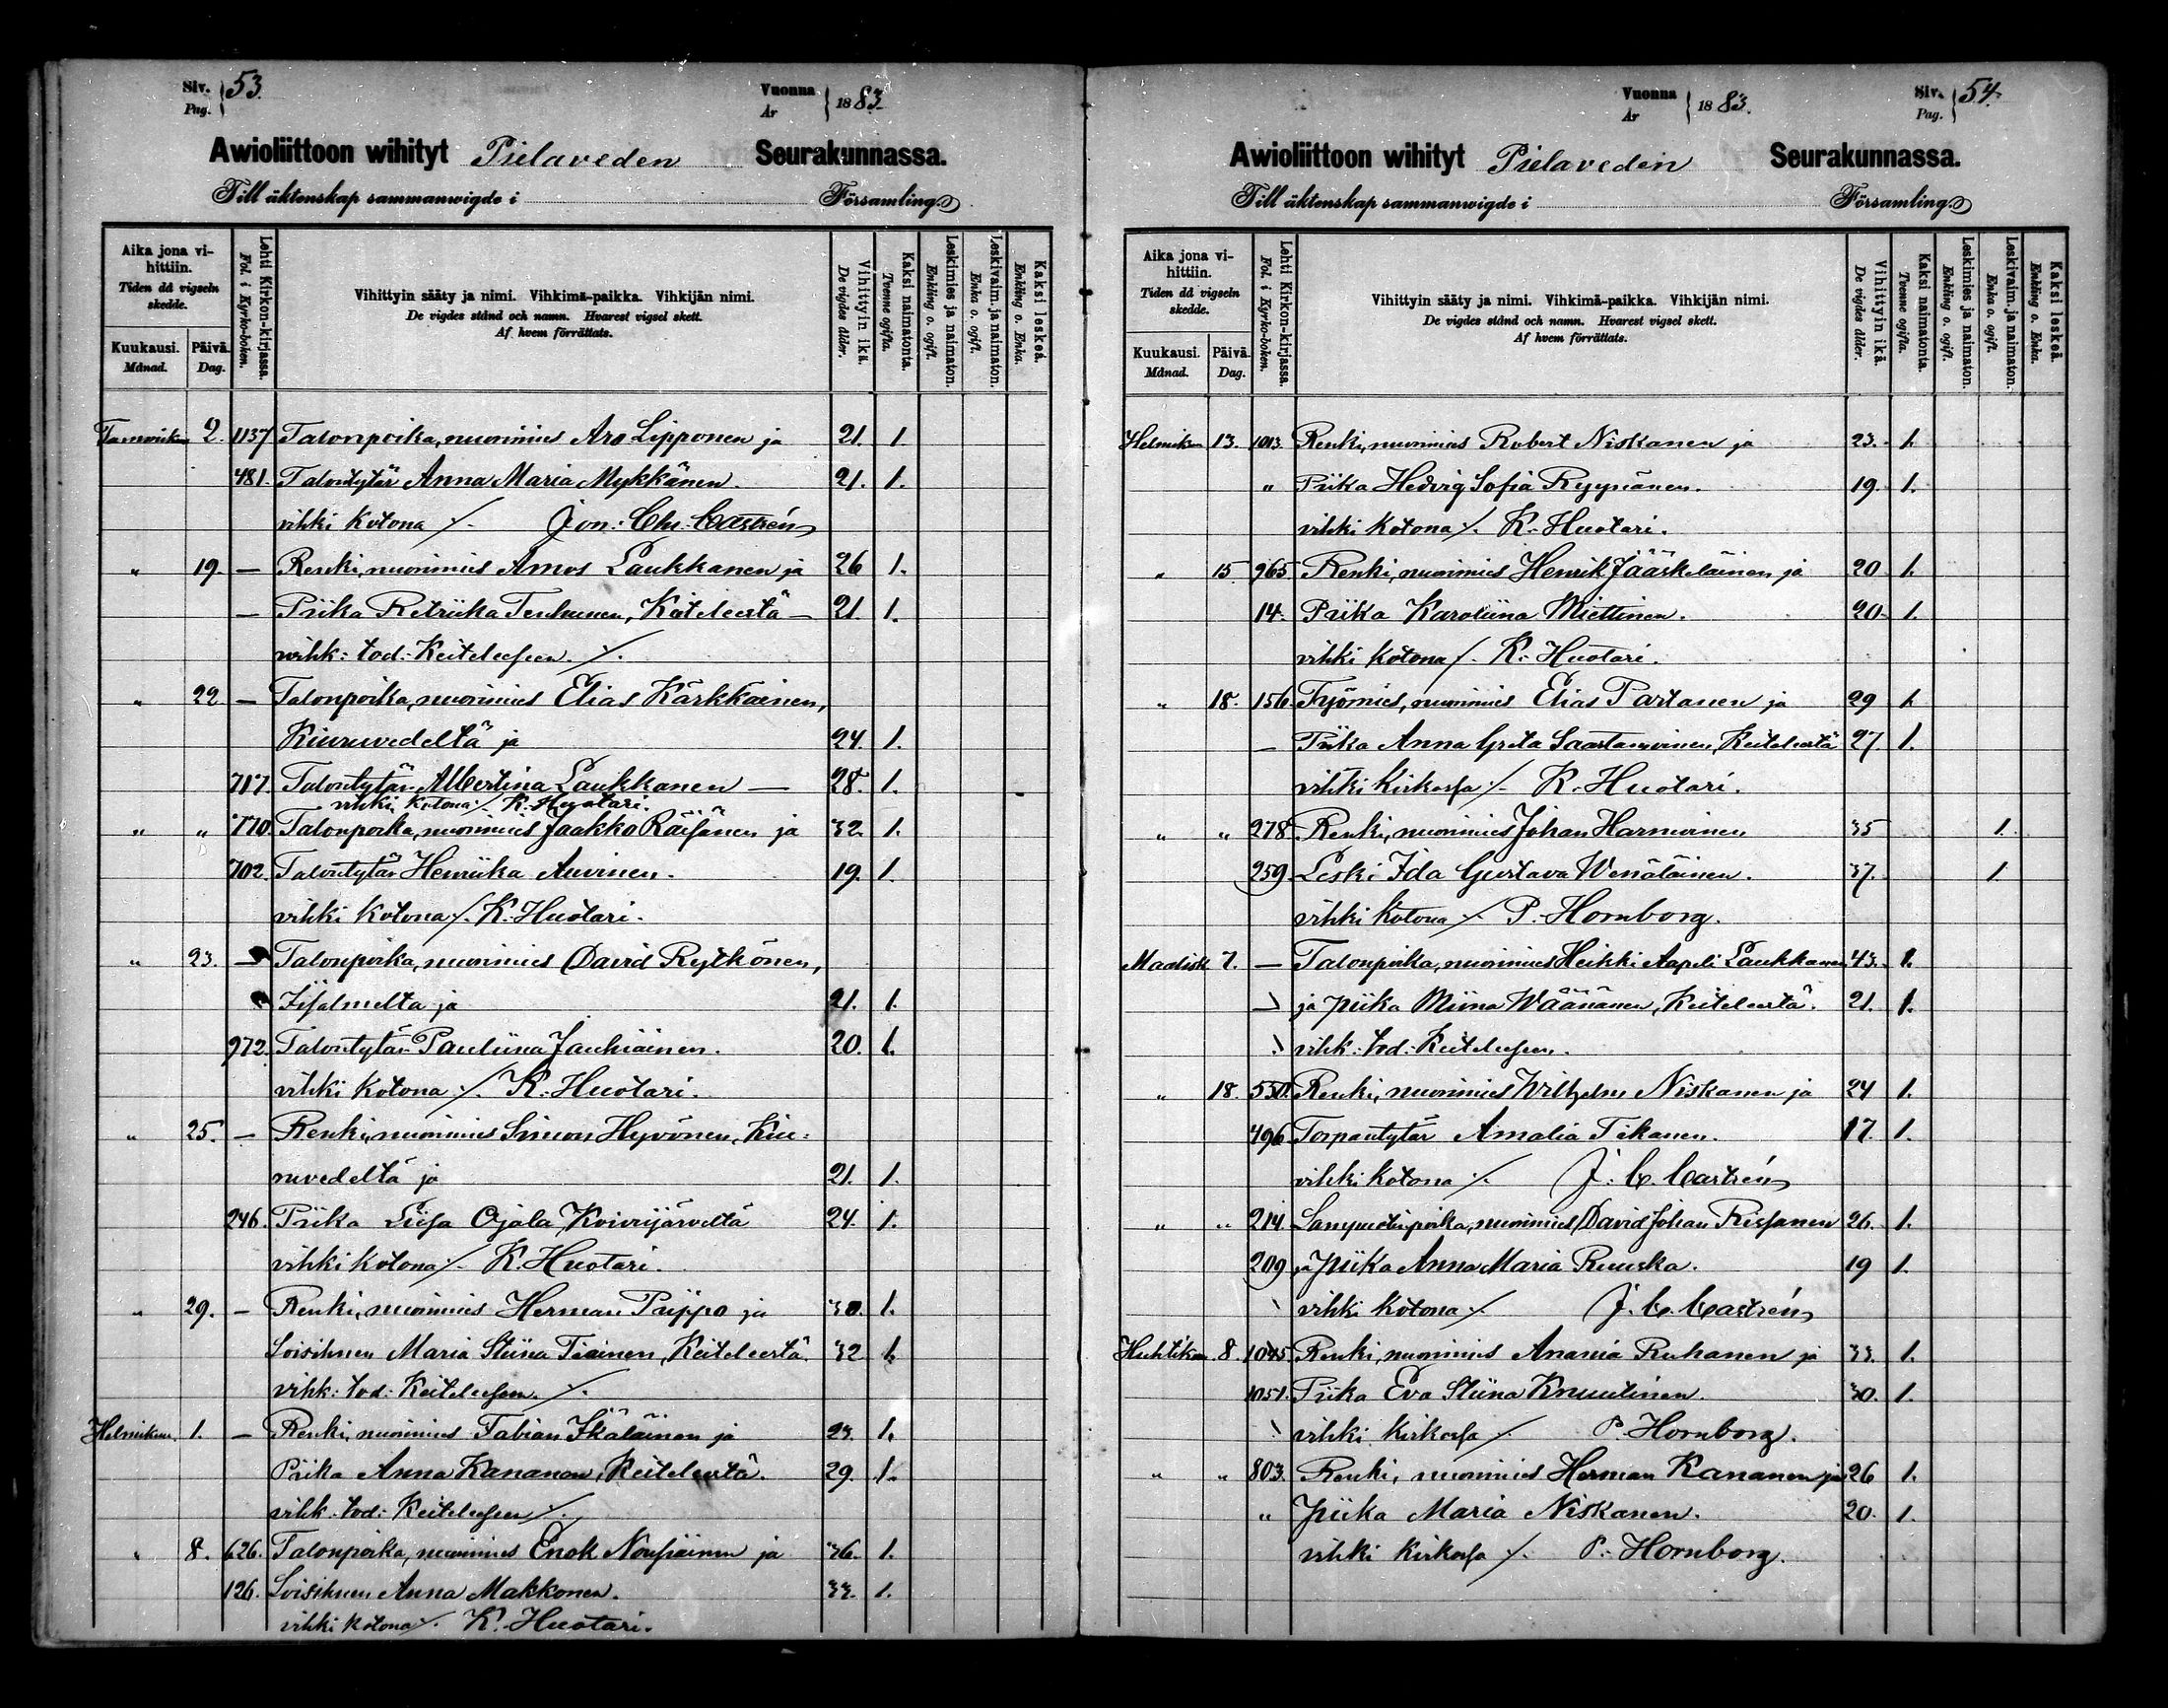 Siv. Pag. 53.
Vuonna År 1883.
Awioliittoon wihityt Pielaveden Seurakunnassa.
Till äktenskap sammanwigde i Församling.
Aika jona vihittiin. Tiden då vigseln skedde.
Kuukausi. Månad.
Päivä. Dag.
Lehti Kirkon-kirjassa. Fol. i Kyrko-boken.
Vihittyin sääty ja nimi. Vihkimä-paikka. Vihkijän nimi.
De vigdes stånd och namn. Hvarest vigsel skett.
Af hvem förrättats.
Vihittyin ikä. De vigdes ålder.
Kaksi naimatonta. Tvenne ogifta.
Leskimies ja naimaton. Enkling o. ogift.
Leskivaim. ja naimaton. Enka o. ogift.
Kaksi leskeä. Enkling o. Enka.
Tammikuu 2. 1137 Talonpoika, nuorimies Aro Lipponen ja 21. 1.
481. Talontytär Anna Maria Mykkänen. 21. 1.
vihki kotona ./. Jon: Chr: Castrén
" 19. — Renki, nuorimies Amos Laukkanen ja 26 1.
— Piika Retriika Tenhunen, Keiteleestä — 21. 1.
wihk: tod: Keiteleeseen. ./.
" 22. — Talonpoika, nuorimies Elias Kärkkäinen,
Kiuruvedeltä ja 24. 1.
717. Talontytär Albertina Laukkanen — 28. 1.
vihki kotona ./. K. Huotari.
" " 770. Talonpoika, nuorimies Jaakko Räisänen ja 32. 1.
702. Talontytär Henriika Auvinen. 19. 1.
vihki kotona ./. K. Huotari.
" 23. — Talonpoika, nuorimies David Rytkönen,
Iisalmelta ja 21. 1.
972. Talontytär Pauliina Jauhiainen. 20. 1.
vihki kotona ./. K. Huotari.
" 25. — Renki, nuorimies Simon Hyvönen, Kiu:
ruvedeltä ja 21. 1.
246. Piika Liisa Ojala, Koivujärveltä 24. 1.
vihki kotona ./. K. Huotari.
" 29. — Renki, nuorimies Herman Piippo ja 30. 1.
Loisihnen Maria Stiina Tiainen, Keiteleestä. 32 1.
vihk: tod: Keiteleeseen. ./.
Helmikuu. 1. — Renki, nuorimies Fabian Ikäläinen ja 23. 1.
Piika Anna Kananen, Keiteleestä. 29. 1.
vihk. tod: Keiteleeseen ./.
" 8. 626. Talonpoika, nuorimies Enok Nousiainen ja 36. 1.
126. Loisihnen Anna Makkonen. 33. 1.
vihki kotona ./. K. Huotari.
Vuonna År 1883.
Siv. Pag. 54.
Awioliittoon wihityt Pielaveden Seurakunnassa.
Till äktenskap sammanwigde i Församling.
Aika jona vihittiin. Tiden då vigseln skedde.
Kuukausi. Månad.
Päivä. Dag.
Lehti Kirkon-kirjassa. Fol. i Kyrko-boken.
Vihittyin sääty ja nimi. Vihkimä-paikka. Vihkijän nimi.
De vigdes stånd och namn. Hvarest vigsel skett.
Af hvem förrättats.
Vihittyin ikä. De vigdes ålder.
Kaksi naimatonta. Tvenne ogifta.
Leskimies ja naimaton. Enkling o. ogift.
Leskivaim. ja naimaton. Enka o. ogift.
Kaksi leskeä. Enkling o. Enka.
Helmikuu 13. 1013. Renki, nuorimies Robert Niskanen ja 23. 1.
" Piika Hedvig Sofia Ryynänen. 19. 1.
vihki kotona ./. K. Huotari.
" 15. 965 Renki, nuorimies Henrik Jääskeläinen ja 20. 1.
14. Piika Karoliina Miettinen. 20. 1.
vihki kotona ./. K. Huotari.
" 18. 156. Työmies, nuorimies Elias Partanen ja 29 1.
— Piika Anna Greta Saastamoinen, Keiteleestä 27. 1.
vihki kirkossa ./. K. Huotari.
" " 278. Renki, nuorimies Johan Harmoinen 35 1.
259. Leski Ida Gustava Wenäläinen. 37. 1
vihki kotona ./. P. Hornborg.
Maalisk 7. — Talonpoika, nuorimies Heikki Aapeli Laukkanen 43. 1.
— ja piika Miina Wäänänen, Keiteleestä. 21. 1.
vihk: tod: Keiteleeseen.
" 18. 550. Renki, nuorimies Wilhelm Niskanen ja 24 1.
496. Torpantytär Amalia Tikanen. 17. 1.
vihki kotona ./. J. C. Castrén
" " 214. Lampuotinpoika, nuorimies David Johan Rissanen 26. 1.
209 ja piika Anna Maria Ruuska. 19 1.
vihki kotona ./. J. C. Castrén
Huhtikuu. 8. 1045. Renki, nuorimies Anania Ruhanen ja 33. 1.
1051. Piika Eva Stiina Knuutinen. 30. 1.
vihki kirkossa ./. P. Hornborg.
" " 803. Renki, nuorimies Herman Kananen ja 26 1.
" Piika Maria Niskanen. 20. 1.
vihki kirkossa ./. P. Hornborg.